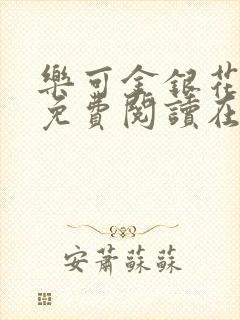 樂可金銀花
免費閱讀在
安蕭蘇蘇